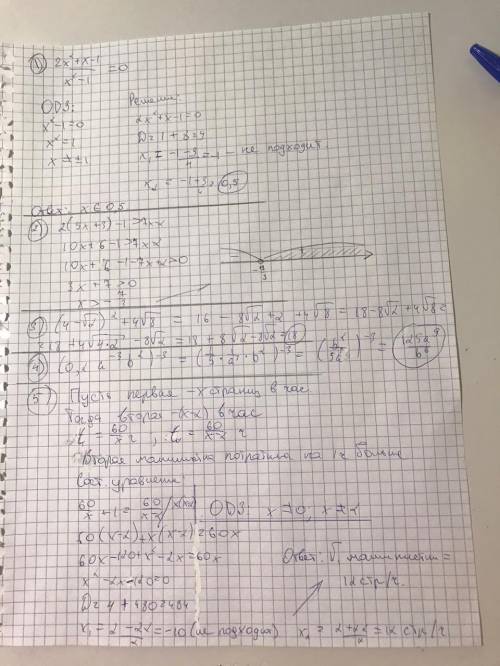 1) (2x²+x-1)/(x²-1) = 0
ОДЗ:
x²-1=0
x²=1
x≠±1
Решение:
2x²+x-1=0
D=1+8=9
x₁=(-1-3)/4=-1 - не подходит
x₂=(-1+3)/4=0,5
Ответ: x∈0,5
2) 2(5x+3)-1>7x-2
10x+6-1>7x-2
10x+6-1-7x+2>0
3x+7>0
x>-7/3
-7/3
3) (4-√2)²+4√8 = 16-8√2+2+4√8 = 18-8√2+4√8=
=18+4√4·2-8√2=18+8√2-8√2=18
4) (0,2a⁻³b²)⁻³=(1/5·a⁻³·b²)⁻³=(b²/5a³)⁻³=125a⁹/b⁶
5) Пусть первая -x страниц в час
тогда вторая -(x-2) в час
t₁=60/x ч, t₂=60/(x-2) ч
Вторая машинистка потратила на 1ч больше
сост. уравнение:
60/x+1=60/(x-2) /x(x-2) ОДЗ: x≠0, x≠2
60(x-2)+x(x-2)=60x
60x-120+x²-2x=60x
x²-2x-120=0
D=4+480=484
x₁=(2-22)/2=-10 (не подходит) x₂=(2+22)/2=12 стр/ч
Ответ: машинистки =
12 стр/ч.